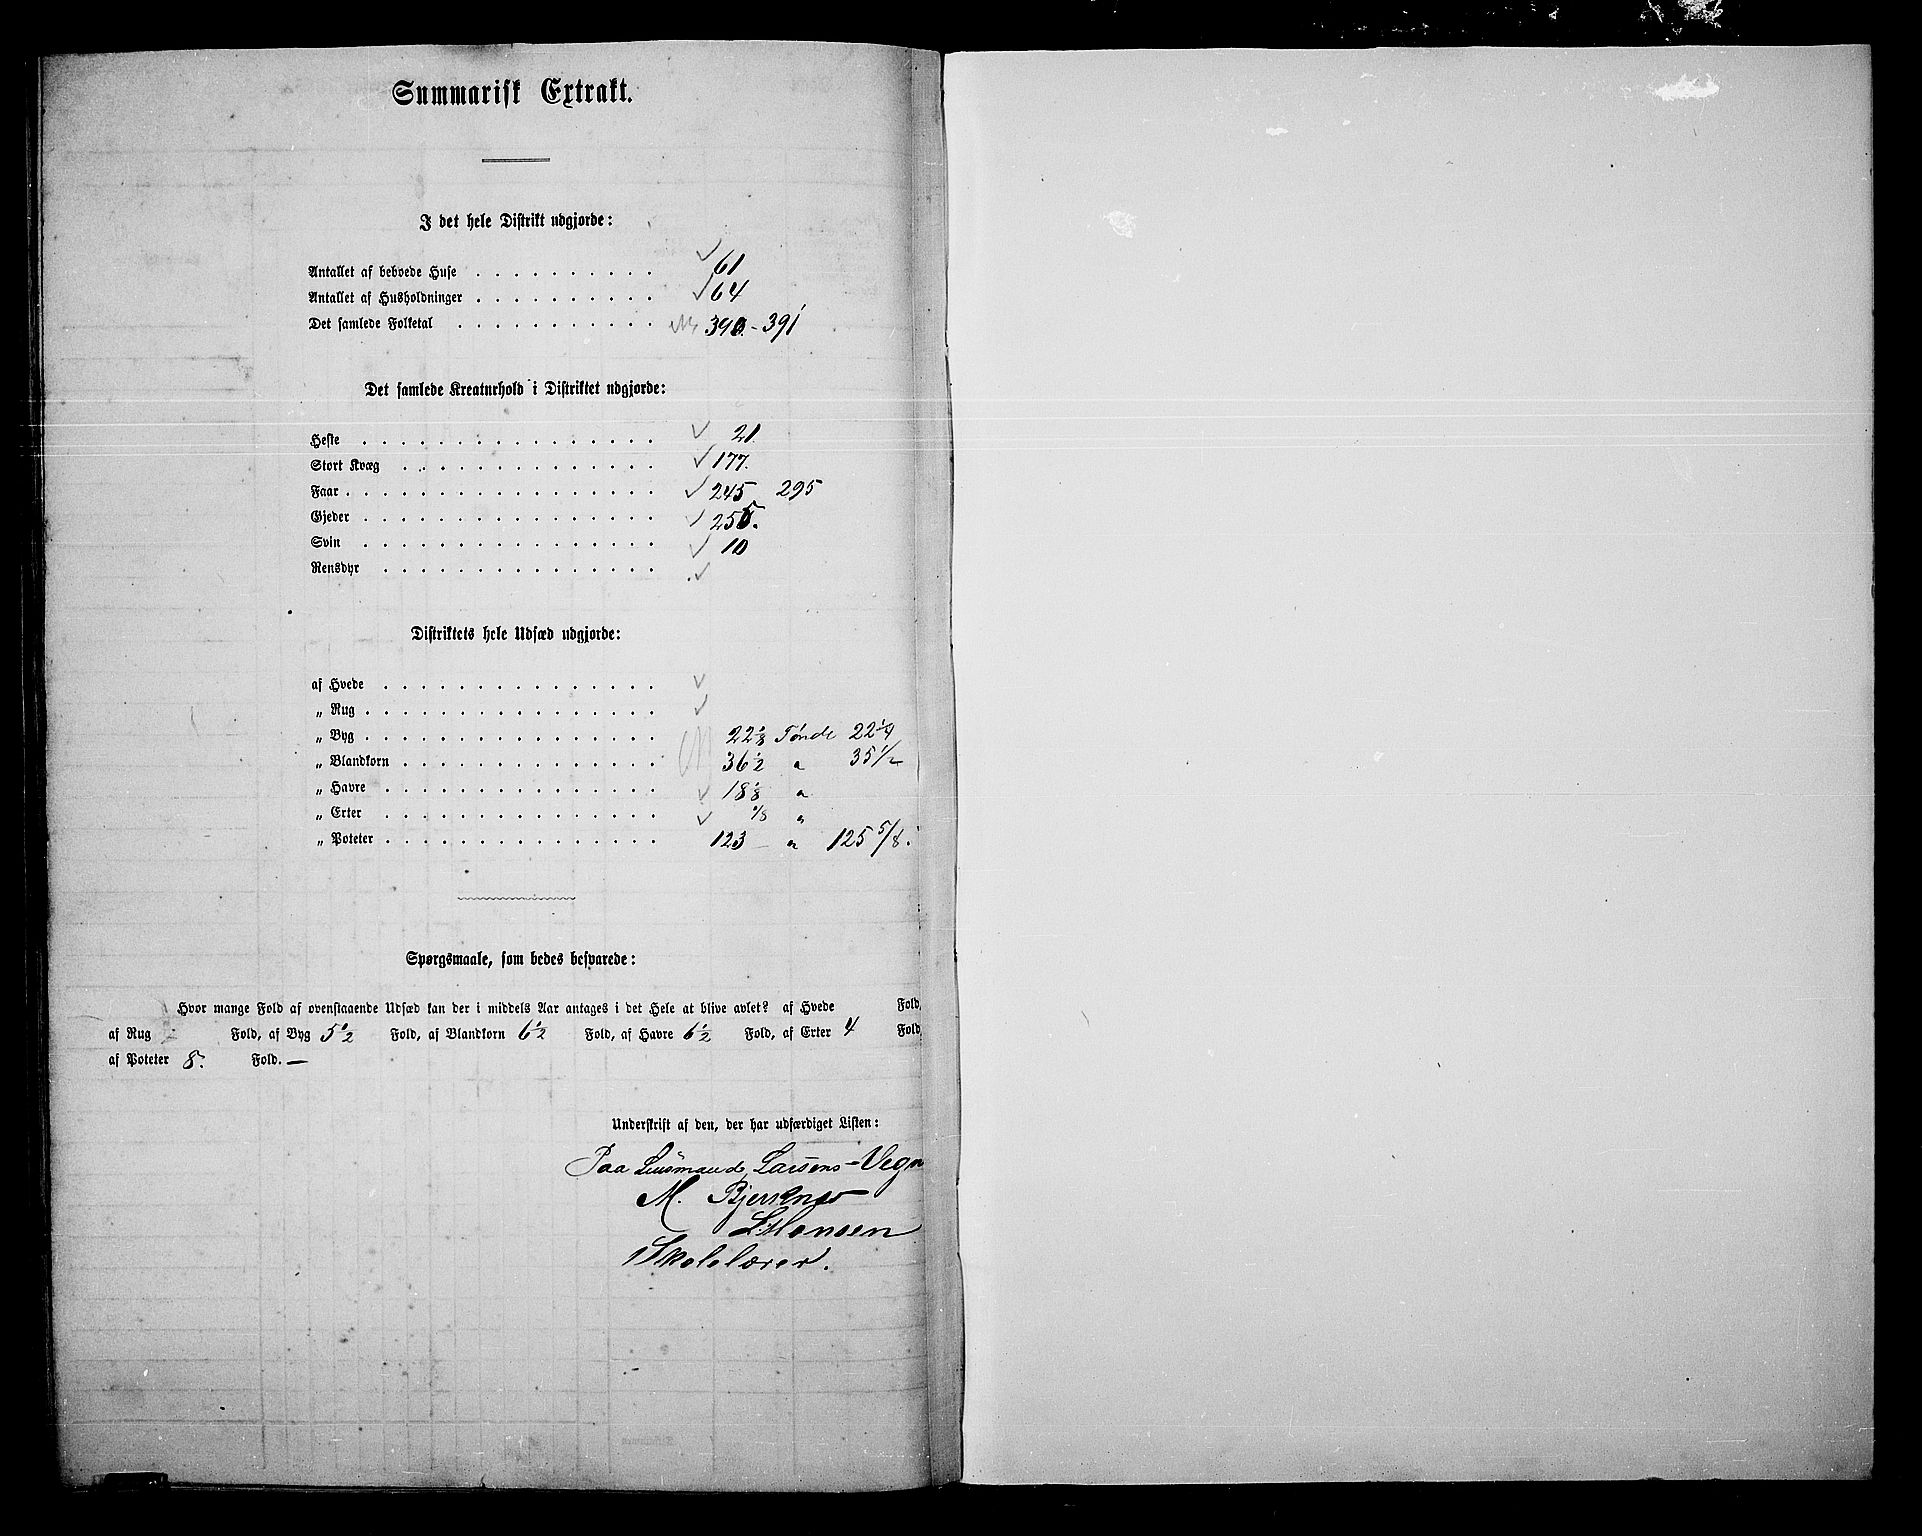 Summarisk Extrakt.
I det hele Distrikt udgjorde:
Antallet af beboede Huse . . . . . . . . . . 61
Antallet af Husholdninger . . . . . . . . . . 64
Det samlede Folketal . . . . . . . . . . . 390. - 391
Det samlede Kreaturhold i Distriktet udgjorde:
Heste . . . . . . . . . . . . . . . . 21.
Stort Kvæg . . . . . . . . . . . . . . 177.
Faar . . . . . . . . . . . . . . . . . 245 295
Gjeder . . . . . . . . . . . . . . . . 255.
Svin . . . . . . . . . . . . . . . . 10
Rensdyr . . . . . . . . . . . . . . .
Distriktets hele Udsæd udgjorde:
af Hvede . . . . . . . . . . . . . . .
„ Rug . . . . . . . . . . . . . . . .
„ Byg . . . . . . . . . . . . . . . . 22 1/8 Tønde 22 1/4
„ Blandkorn . . . . . . . . . . . . . . 36 1/2 „ 35 1/2
„ Havre . . . . . . . . . . . . . . . 18 1/8 „
„ Erter . . . . . . . . . . . . . . . 1/8 „
„ Poteter . . . . . . . . . . . . . . . 123 – „ 125 5/8.
Spørgsmaale, som bedes besvarede:
Hvor mange Fold af ovenstaaende Udsæd kan der i middels Aar antages i det Hele at blive avlet? af Hvede Fold,
af Rug Fold, af Byg 5 1/2 Fold, af Blandkorn 6 1/2 Fold, af Havre 6 1/2 Fold, af Erter 4 Fold,
af Poteter 8. Fold. —
Underskrift af den, der har udfærdiget Listen:
Paa Lensmand Larsens Vegn
M.
Hansen
Skolelærer.